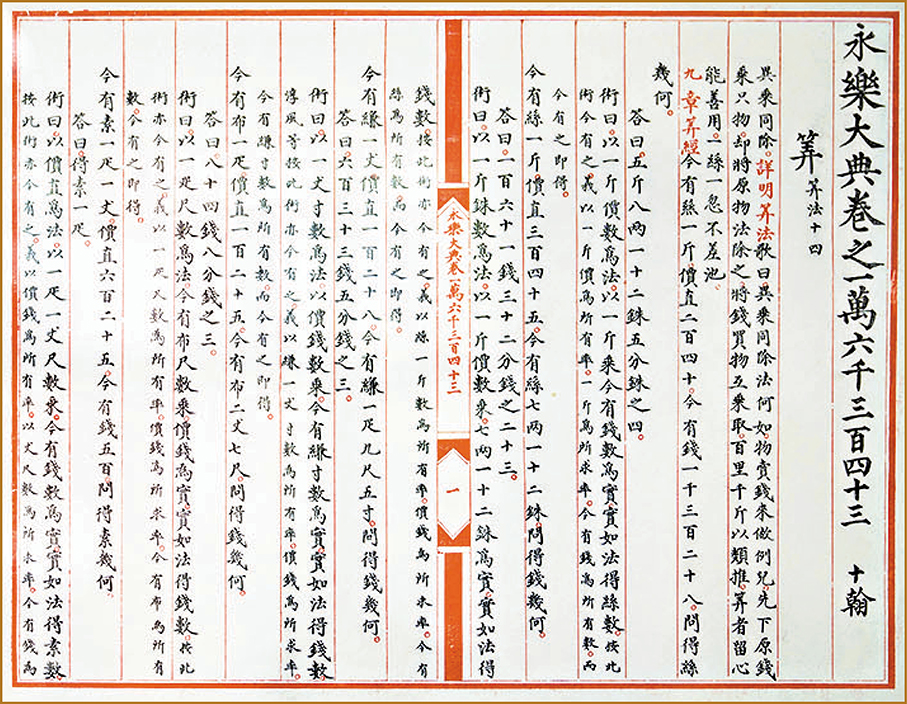 永樂大典卷之一萬六千三百四十三 十翰
筭 筭法十四
異乘同除。詳明筭法歌曰異乘同除法何如物賣錢來做例兄。先下原錢
乘只物。却將原物法除之。將錢買物互乘取。百里千斤以類推。筭者留心
能善用。一絲一忽不差池。
九章筭經今有絲一斤。價直二百四十。今有錢一千三百二十八。問得絲
幾何。
答曰。五斤八兩一十二銖五分銖之四。
術曰。以一斤價數為法。以一斤乘今有錢數為實。實如法得絲數。按此
術今有之義。以一斤價為所有率。一斤為所求率。今有錢為所有數。而
今有之即得。
今有絲一斤。價直三百四十五。今有絲七兩一十二銖。問得錢幾何。
答曰。一百六十一錢三十二分錢之二十三。
術曰。以一斤銖數為法。以一斤價數。乘七兩一十二銖為實。實如法得
永樂大典卷一萬六千三百四十三
一
錢數。按此術亦今有之。義以絲一斤銖數為所有率。價錢為所求率。今有
絲為所有數。而今有之即得。
今有縑一丈。價直一百二十八。今有縑一疋九尺五寸。問得錢幾何。
答曰。六百三十三錢五分錢之三。
術曰。以一丈寸數為法。以價錢數乘今有縑寸數為實。實如法得錢數。
淳風等按此術亦今有之義。以縑一丈寸數為所有率。價錢為所求率。
今有縑寸數為所有數。而今有之即得。
今有布一疋。價直一百二十五。今有布二丈七尺。問得錢幾何。
答曰。八十四錢八分錢之三。
術曰。以一疋尺數為法。今有布尺數乘價錢為實。實如法得錢數。按此
術亦今有之義。以一疋尺數為所有率。價錢為所求率。今有布為所有
數。今有之即得。
今有素一疋一丈。價直六百二十五。今有錢五百。問得素幾何。
答曰。得素一疋。
術曰。以價直為法。以一疋一丈尺數乘今有錢數為實。實如法得素數。
按此術亦今有之。義以價錢為所有率。以丈尺數為所求率。今有錢為